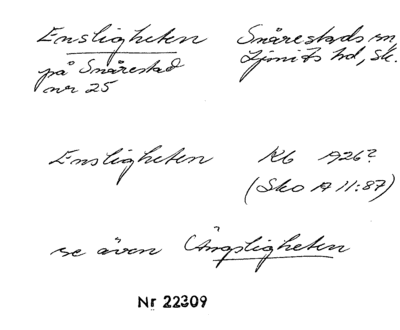 Ensligheten Snårestads sn
på Snårestad Ljunits hd, Sk.
nr 25
Ensligheten Kb 1926?
(Sko A 11:87)
se även Ängsligheten
Nr 22309